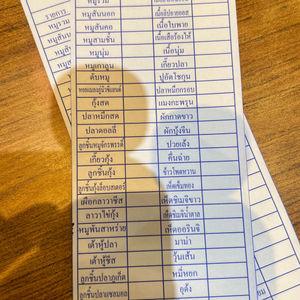 หมูรวม
หมูสันนอก เนื้อติดมันออส
หมูสันคอ เนื้อใบพาย
หมูสามชั้น เนื้อเสือร้องไห้
หมูนุ่ม เนื้อนุ่ม
เกี๊ยวปลา
ตับหมู ปูอัดไข่กุ้ง
หอยแมลงภู่นิวซีแลนด์ ปลาหมึกกรอบ
กุ้งสด แมงกะพรุน
ปลาหมึกสด ผักกาดขาว
ปลาดอลลี่ ผักบุ้งจีน
ลูกชิ้นหมูจักรพรรดิ์ ปวยเล้ง
เกี๊ยวกุ้ง คื่นฉ่าย
ลูกชิ้นกุ้ง ข้าวโพดหวาน
ลูกชิ้นกุ้งล็อบสเตอร์ เห็ดเข็มทอง
เผือกลาวาชีส เห็ดชิเมจิขาว
ลาวาไข่กุ้ง เห็ดชิเมจิน้ำตาล
หมูพันสาหร่าย เห็ดออรินจิ
เต้าหู้ปลา มาม่า
เต้าหู้ชีส วุ้นเส้น
ลูกชิ้นปลาภูเก็ต หมี่หยก
ลูกชิ้นปลาแซลมอน อุด้ง
รายการ